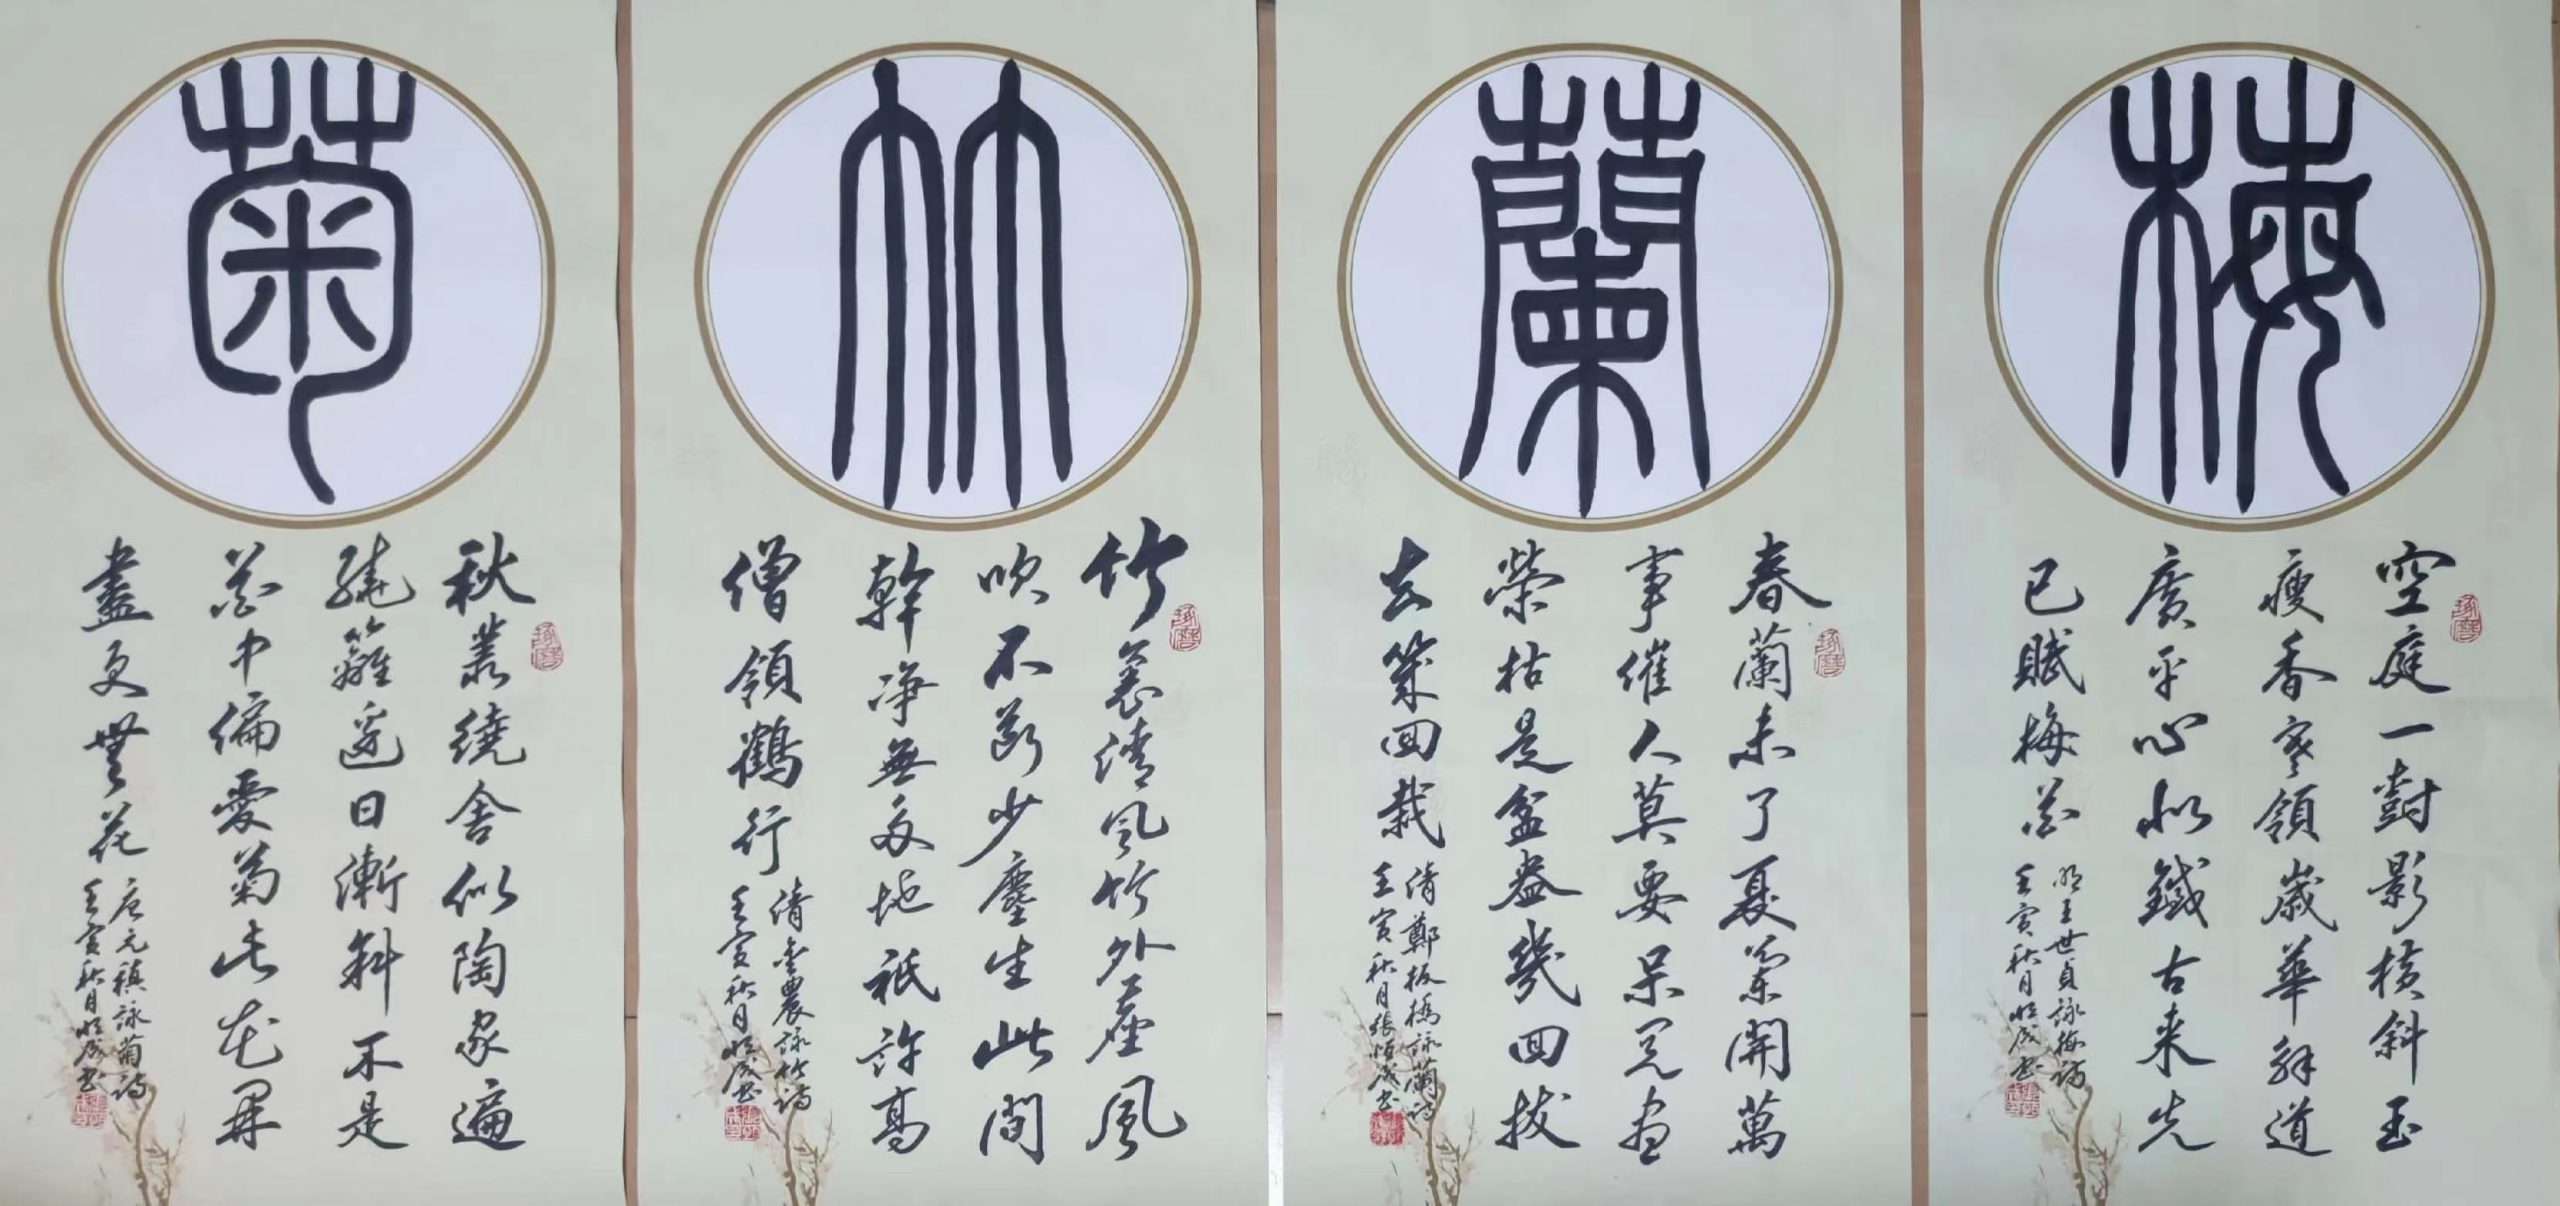 梅
空庭一對影橫斜玉
瘦香寒領歲華解道
廣平心似鐵古來先
已賦梅花
明王世貞詠梅詩
壬寅秋月恒成書
蘭
春蘭未了夏蘭開萬
事催人莫要呆閱盡
榮枯是盆盎幾回拔
去幾回栽
清鄭板橋詠蘭詩
壬寅秋月張恒成書
竹
竹裏清風竹外塵風
吹不斷少塵生此間
幹净無多地祇許高
僧領鶴行
清金農詠竹詩
壬寅秋月恒成書
菊
秋叢繞舍似陶家遍
繞籬邊日漸斜不是
花中偏愛菊此花開
盡更無花
唐元稹詠菊詩
壬寅秋月恒成書